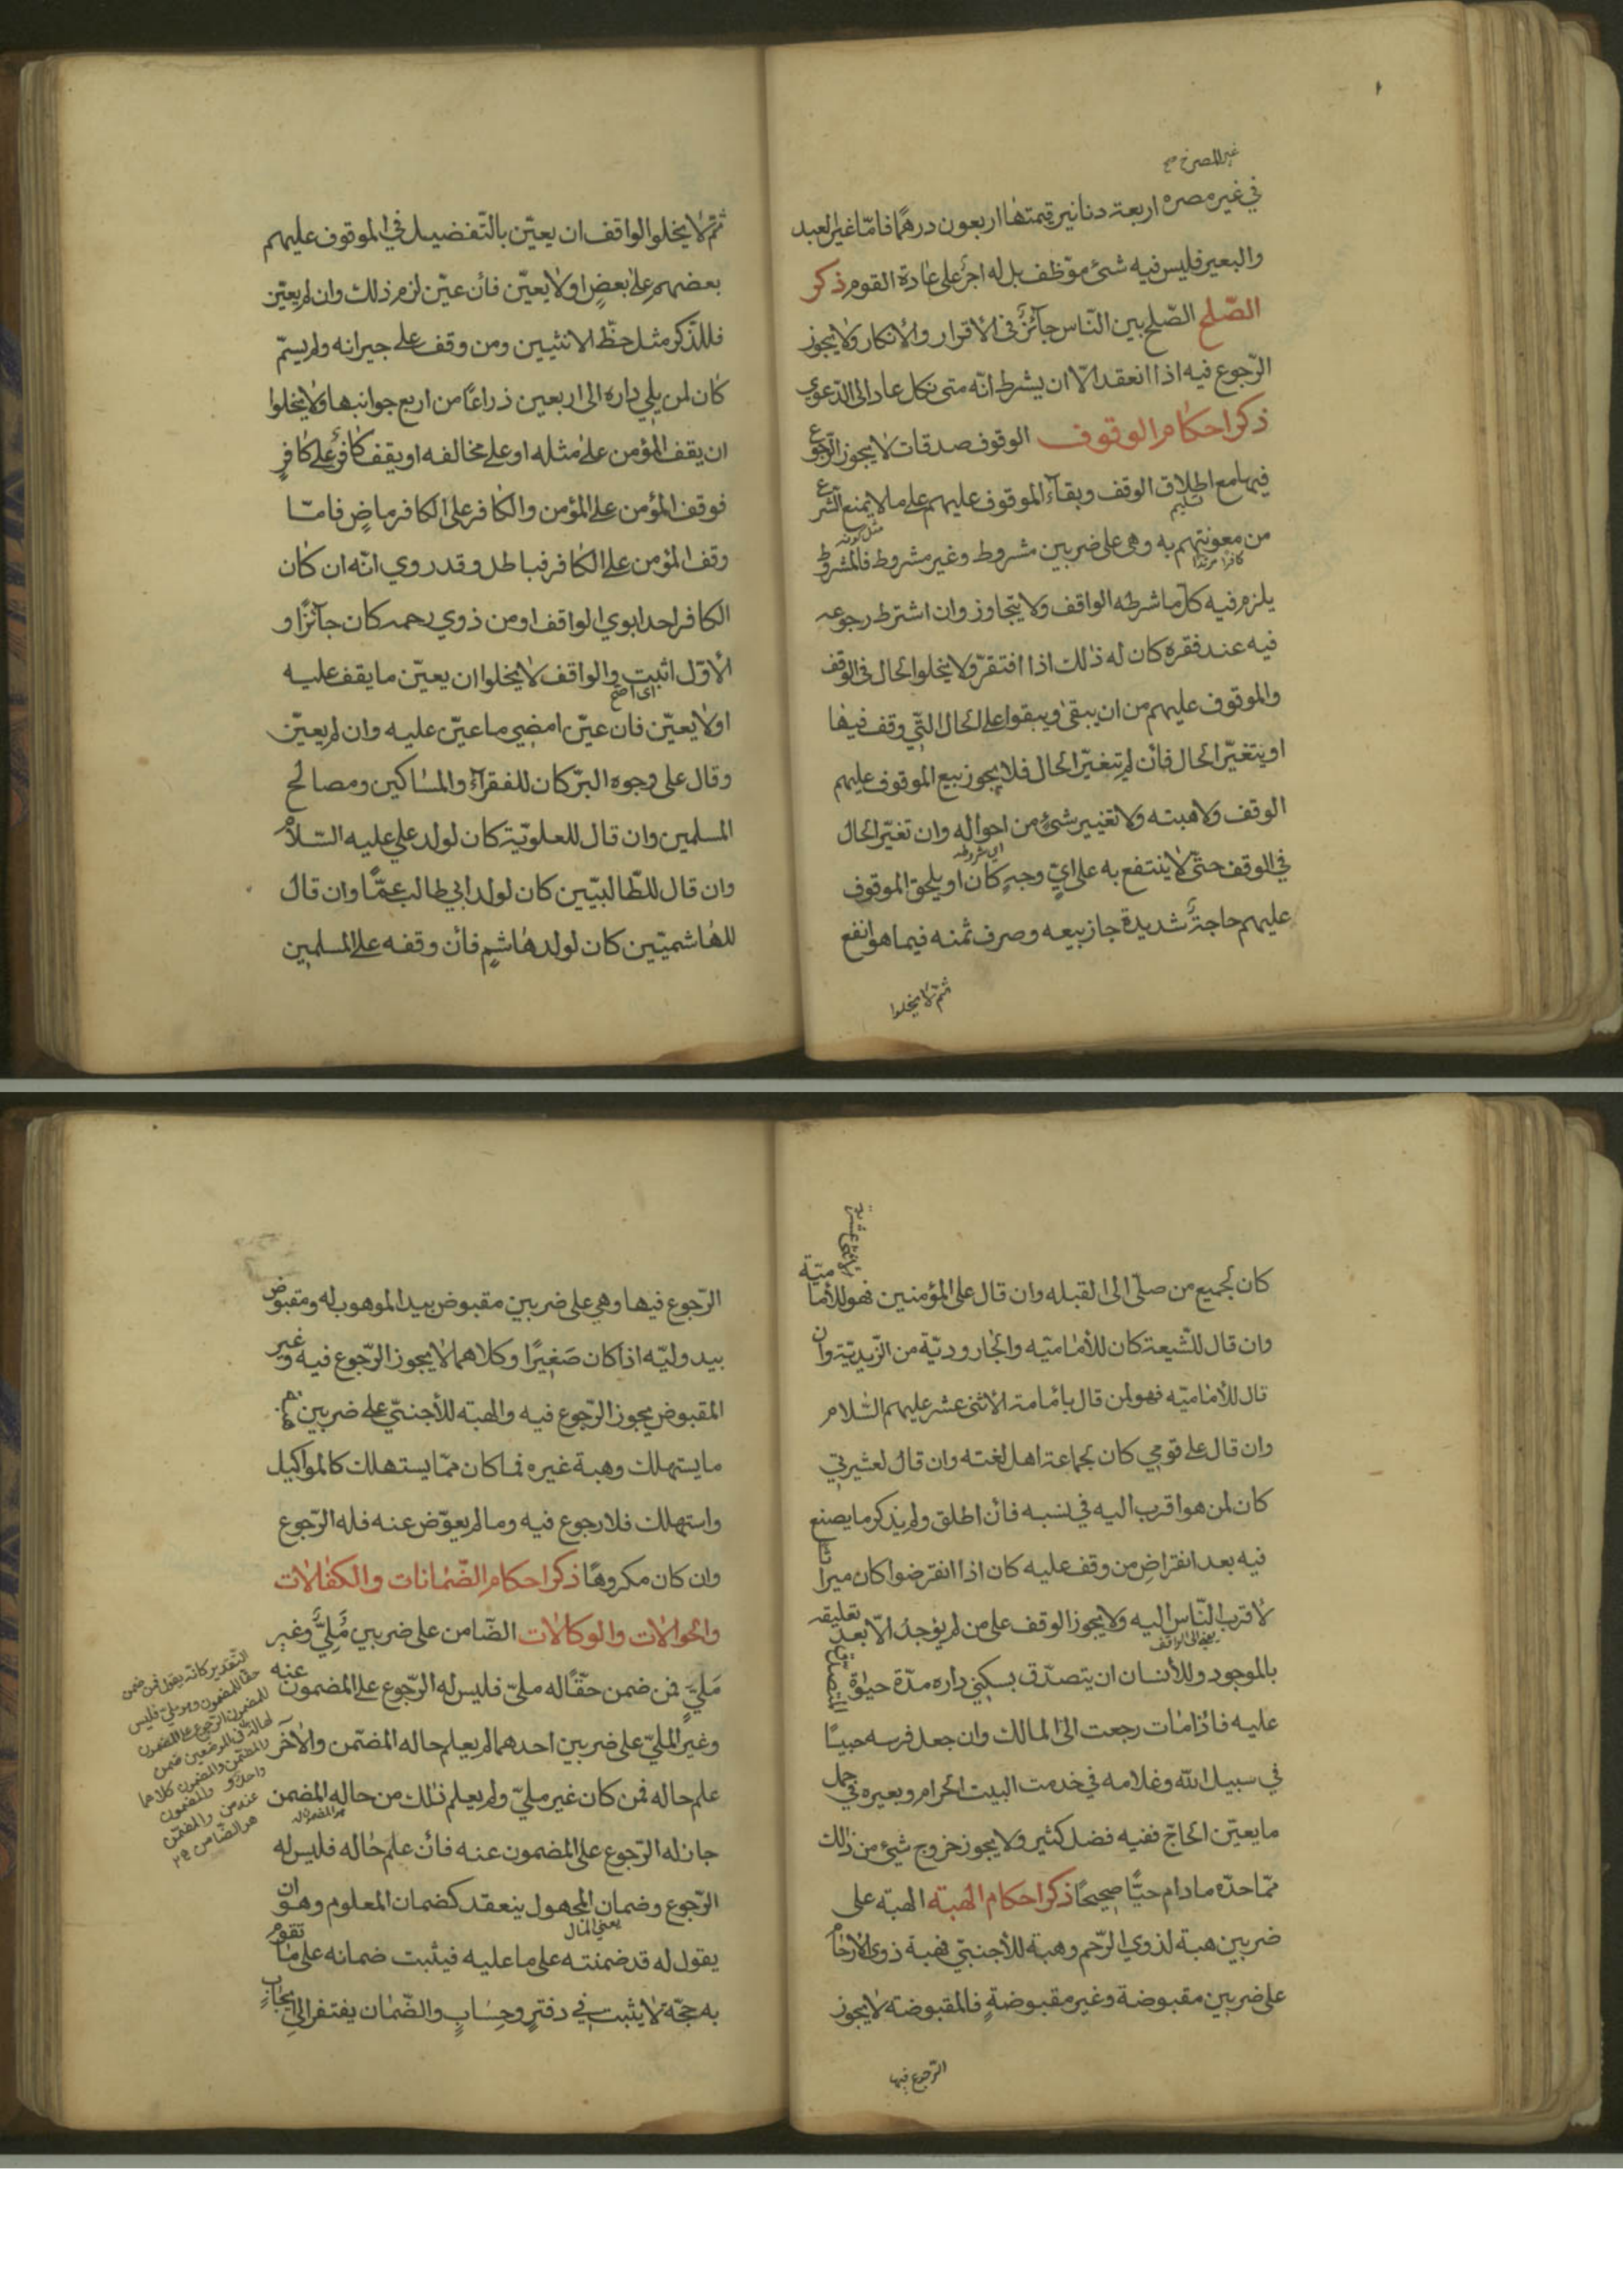 غير المصر خ صح
في غير مصره اربعة دنانير قيمتها اربعون درهمًا فامّا غير العبد
والبعير فليس فيه شئ موظف بل له اجرٌ على عادة القوم ذكر
الصّلح الصّلح بين النّاس جآئزٌ في الأقرار والأنكار ولا يجوز
الرّجوع فيه اذا انعقد الّا ان يشرط انّه متى نكل عاد الى الدّعوي
ذكر احكام الوقوف الوقوف صدقات لا يجوز الرّجوع
فيها مع اطلاق الوقف وبقآء الموقوف عليهم على ما لا يمنع الشرع
من معونتهم به وهي على ضربين مشروط وغير مشروط فالمشروط
مثل كونه
كافرا مرتدا
يلزم فيه كلّ ما شرطه الواقف ولا يتجاوز وان اشترط رجوعه
فيه عند فقره كان له ذلك اذا افتقر ولا يخلوا الحال في الوقف
والموقوف عليهم من ان يبقى ويبقوا على الحال الّتي وقف فيها
او يتغيّر الحال فأن لم يتغيّر الحال فلا يجوز بيع الموقوف عليهم
الوقف ولا هبته ولا تغيير شئٍ من احواله وان تغيّر الحال
اي شروطه
في الوقف حتّى لا ينتفع به على ايّ وجهٍ كان او يلحق الموقوف
عليهم حاجةٌ شديدة جاز بيعه وصرف ثمنه فيما هو انفع
ثمّ لا يخلوا
ثمّ لا يخلوا الواقف ان يعيّن بالتّفضيل في الموقوف عليهم
بعضهم على بعضٍ او لا يعيّن فأن عيّن لزم ذلك وان لم يعيّن
فللذّكر مثل حظّ الانثيين ومن وقف على جيرانه ولم يسمّ
كان لمن يلي داره الى اربعين ذراعًا من اربع جوانبها ولا يخلوا
ان يقف المؤمن على مثله او على مخالفه او يقف كافرٌ على كافرٍ
فوقف المؤمن على المؤمن والكافر على الكافر ماضٍ فامّا
وقف المؤمن على الكافر فباطل وقد روي انّه ان كان
الكافر احد ابوي الواقف او من ذوي رحمه كان جآئزًا و
الأوّل اثبت والواقف لا يخلوا ان يعيّن ما يقف عليه
اي اصح
او لا يعيّن فان عيّن امضي ما عيّن عليه وان لم يعيّن
وقال على وجوه البرّ كان للفقرآء والمساكين ومصالح
المسلمين وان قال للعلويّة كان لولد علي عليه السّلام
وان قال للطّالبيّين كان لولد ابي طالب عمًّا وان قال
للهاشميّين كان لولد هاشمٍ فأن وقفه على المسلمين
كان لجميع من صلّى الى القبله وان قال على المؤمنين فهو للأماميّة
الاثنى عشرية
وان قال للشّيعة كان للأماميّه والجاروديّة من الزّيديّة وان
قال للأماميّه فهو لمن قال بأمامة الأثنى عشر عليهم السّلام
وان قال على قومي كان لجماعة اهل لغته وان قال لعشيرتي
كان لمن هو اقرب اليه في نسبه فأن اطلق ولم يذكر ما يصنع
فيه بعد انقراضِ من وقف عليه كان اذا انقرضوا كان ميراثا
لأقرب النّاس اليه ولا يجوز الوقف على من لم يؤجد الّا بعد تعليقه
يعني الى الواقف
بالموجود وللأنسان ان يتصدّق بسكني داره مدّة حيوة المتصدّق
عليه فاذا مات رجعت الى المالك وان جعل فرسه حبيسًا
في سبيل الله وغلامه في خدمت البيت الحرام وبعيره في حمل
ما يعيّن الحاجّ ففيه فضل كثير ولا يجوز خروج شئ من ذلك
ممّا حدّه ما دام حيًّا صحيحًا ذكر احكام الهبته الهبته على
ضربين هبة لذوي الرّحم وهبة للأجنبيّ فهبة ذوى الأرحام
على ضربين مقبوضة وغير مقبوضةٍ فالمقبوضة لا يجوز
الرّجوع فيها
الرّجوع فيها وهي على ضربين مقبوض بيد الموهوب له ومقبوض
بيد وليّه اذا كان صغيرًا وكلاهما لا يجوز الرّجوع فيه وغير
المقبوض يجوز الرّجوع فيه والهبته للأجنبيّ على ضربين هبة
ما يستهلك وهبة غيره فما كان ممّا يستهلك كالمواكيل
واستهلك فلا رجوع فيه وما لم يعوّض عنه فله الرّجوع
وان كان مكروهًا ذكر احكام الضّمانات والكفالات
والحوالات والوكالات الضّامن على ضربين مَلِيٌّ وغير
مَلِيٍّ فمن ضمن حقًّا له مليّ فليس له الرّجوع على المضمون عنه
وغير المليّ على ضربين احدهما لم يعلم حاله المضّمن والآخر
علم حاله فمن كان غير مليّ ولم يعلم ذلك من حاله المضمن
هو المضمون له
جاز له الرّجوع على المضمون عنه فأن علم حاله فليس له
الرّجوع وضمان المجهول ينعقد كضمان المعلوم وهو ان
يعني المال
يقول له قد ضمنته على ما عليه فيثبت ضمانه على ما تقوم
به حجّة لا يثبت في دفترٍ وحِسَابٍ والضّمان يفتقر الى ايجابٍ
التّقدير كانّه يقول فمن ضمن
حقّا للمضمون وهو مليّ فليس
للمضمون الرّجوع على المضمون
والمضّمن والمضمون كلاهما
واحد و المضمون
عنه من والمضمّن
هو الضّامن